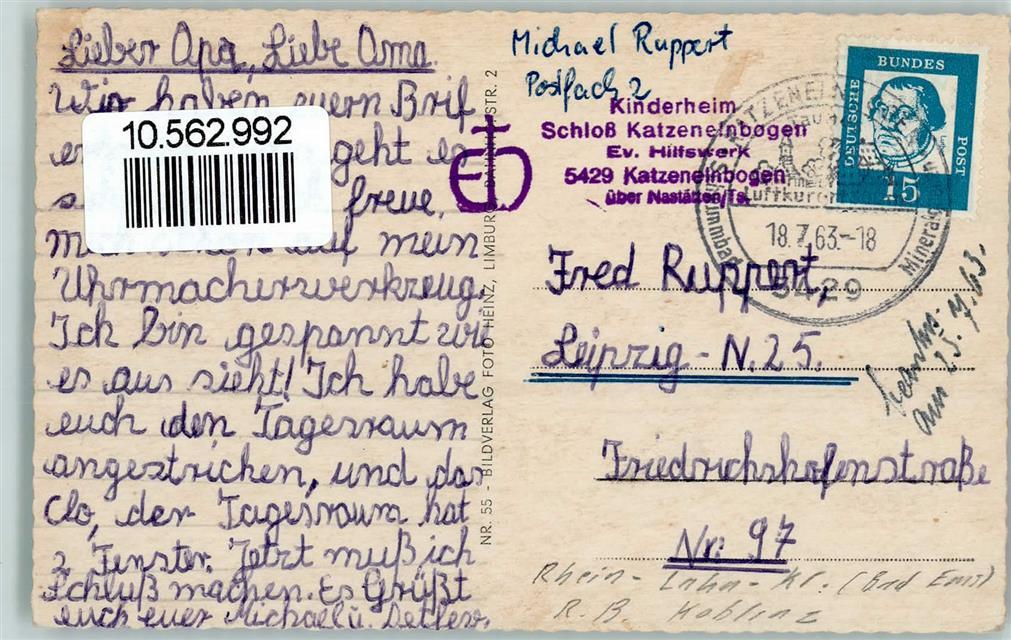 Lieber Opa, Liebe Oma.
Wir haben euern Brif
10.562.992
er geht es
s freue,
auf mein
Uhrmacherwerkzeug.
Ich bin gespannt wi
es aus sieht! Ich habe
euch den Tagesraum
angestrichen, und das
Clo, der Tagesraum hat
2 Fenster. Jetzt muß ich
Schluß machen. Es Grüßt
euch euer Michael u. Detlev.
NR. 55 - BILDVERLAG FOTO HEINZ, LIMBURG STR. 2
Michael Ruppert
Postfach 2
Kinderheim
Schloß Katzenelnbogen
Ev. Hilfswerk
5429 Katzenelnbogen
über Nastätten/Ts.
DEUTSCHE
BUNDES
POST
15
KATZENELN
Luftkurort
18.7.63.-18
Mineral
5429
Fred Ruppert,
Leipzig - N. 25.
Friedrichshafenstraße
Nr: 97
am 25. 7. 63.
Rhein - Lahn - Kr. (Bad Ems)
R. B. Koblenz